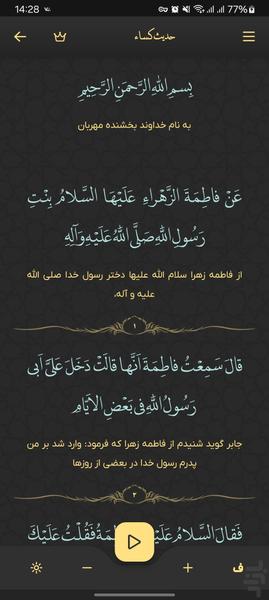 14:28
77%
حدیث کساء
بِسمِ اللهِ الرَّحمنِ الرَّحیمِ
به نام خداوند بخشنده مهربان
عَنْ فاطِمَةَ الزَّهْراءِ عَلَیْهَا السَّلامُ بِنْتِ
رَسُولِ اللهِ صَلَّی اللهُ عَلَیْهِ وَآلِهِ
از فاطمه زهرا سلام الله علیها دختر رسول خدا صلی الله
علیه و آله،
۱
قالَ سَمِعْتُ فاطِمَةَ اَنَّها قالَتْ دَخَلَ عَلَیَّ اَبی
رَسُولُ اللهِ فی بَعْضِ الاَیّامِ
جابر گوید شنیدم از فاطمه زهرا که فرمود: وارد شد بر من
پدرم رسول خدا در بعضی از روزها
۲
فَقالَ السَّلامُ فَقُلْتُ عَلَیْكَ
ف